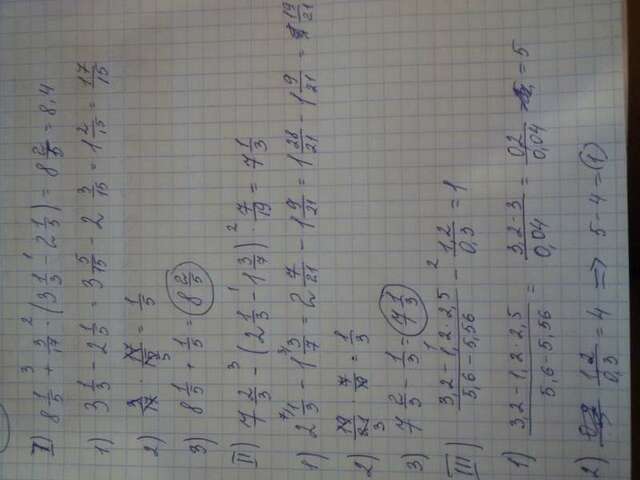 I) 8 1/5 + 3/17 · (3 1/3 - 2 1/5) = 8 2/5 = 8,4
1) 3 1/3 - 2 1/5 = 3 5/15 - 2 3/15 = 1 2/15 = 17/15
2) 3/17 · 17/15 = 1/5
3) 8 1/5 + 1/5 = 8 2/5
II) 7 2/3 - (2 1/3 - 1 3/7) · 7/19 = 7 1/3
1) 2 1/3 - 1 3/7 = 2 7/21 - 1 9/21 = 1 28/21 - 1 9/21 = 19/21
2) 19/21 · 7/19 = 1/3
3) 7 2/3 - 1/3 = 7 1/3
III) 3,2-1,2·2,5/5,6-5,56 - 1,2/0,3 = 1
1) 3,2-1,2·2,5/5,6-5,56 = 3,2-3/0,04 = 0,2/0,04 = 5
2) 1,2/0,3 = 4 => 5-4 = 1